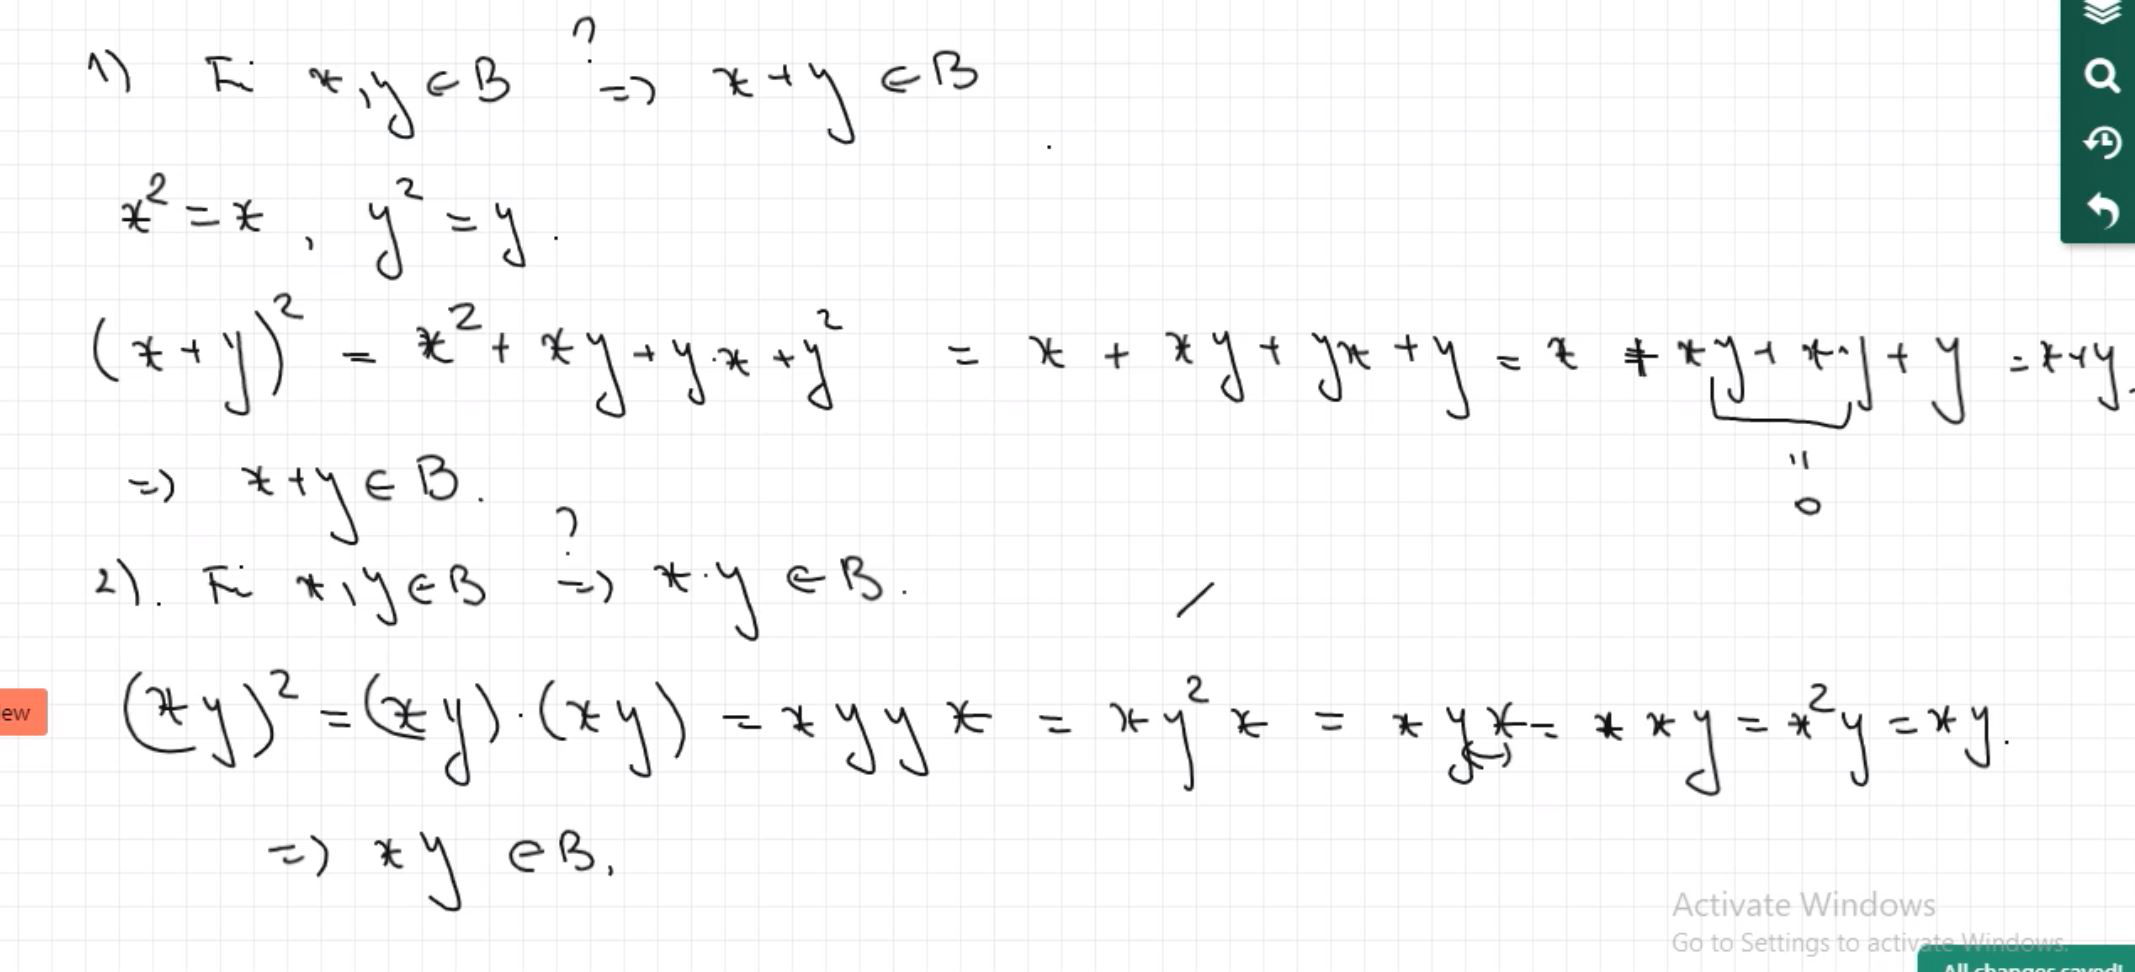 1) Fi x,y ∈ B ?=> x+y ∈ B
.
x² = x, y² = y.
(x+y)² = x² + xy + y·x + y² = x + xy + yx + y = x + xy + x·y + y = x+y.
" 0
=> x+y ∈ B.
2). Fi x,y ∈ B ?=> x·y ∈ B.
(xy)² = (xy)·(xy) = xyyx = xy²x = xyx = xxy = x²y = xy.
ew
=> xy ∈ B,
Activate Windows
Go to Settings to activate Windows.
All changes saved!